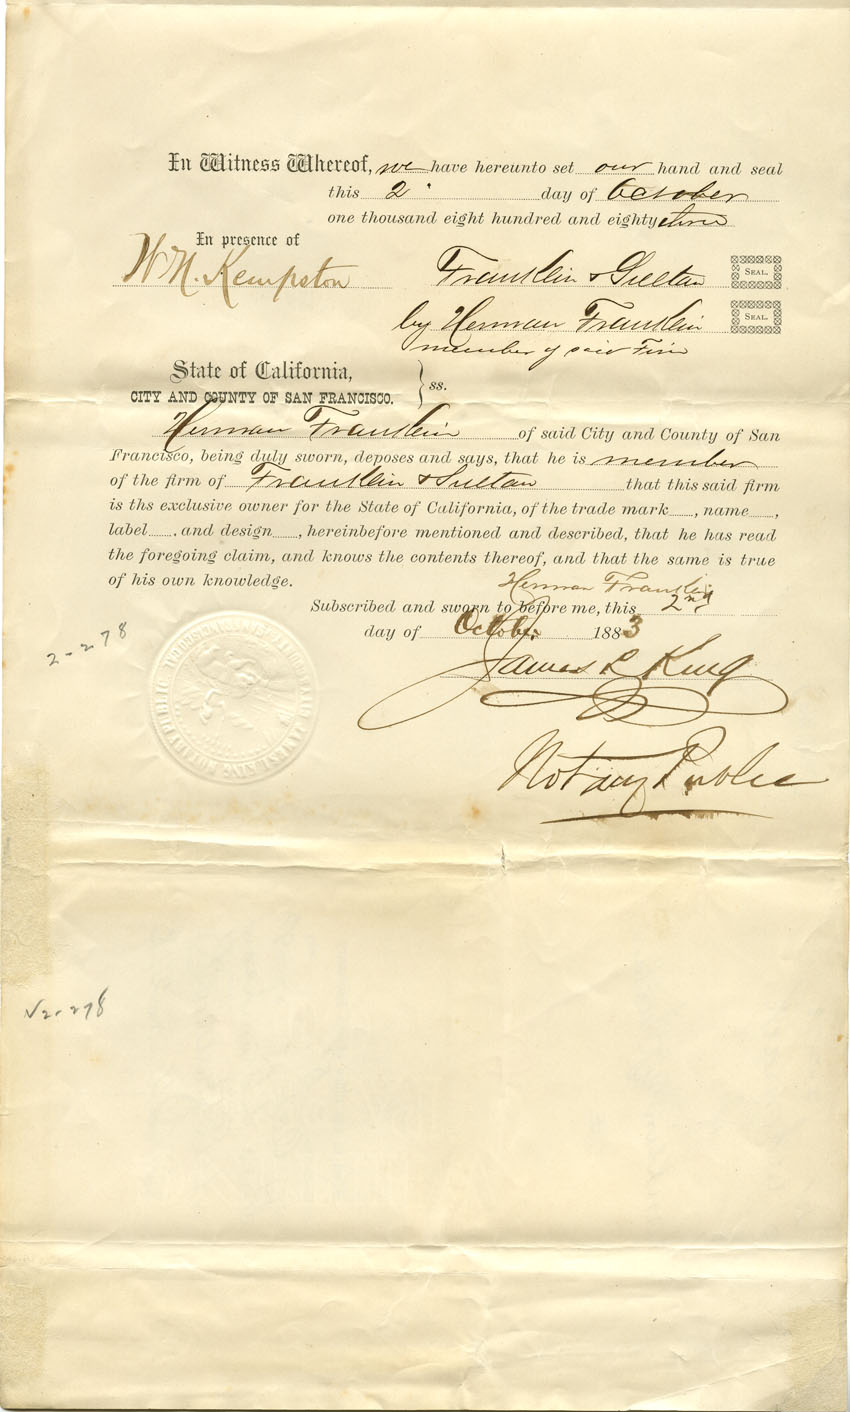 In Witness Whereof, we have hereunto set our hand and seal
this 2 day of October
one thousand eight hundred and eighty three
In presence of
W. N. Kempston
Franklin & Sultan
SEAL.
by Herman Franklin
SEAL.
member of said Firm
State of California,
CITY AND COUNTY OF SAN FRANCISCO. } ss.
Herman Franklin of said City and County of San
Francisco, being duly sworn, deposes and says, that he is member
of the firm of Franklin & Sultan that this said firm
is ths exclusive owner for the State of California, of the trade mark, name,
label, and design, hereinbefore mentioned and described, that he has read
the foregoing claim, and knows the contents thereof, and that the same is true
of his own knowledge.
Herman Franklin
Subscribed and sworn to before me, this 2nd
day of October 1883
2-278
James L King
Notary Public
√2-278